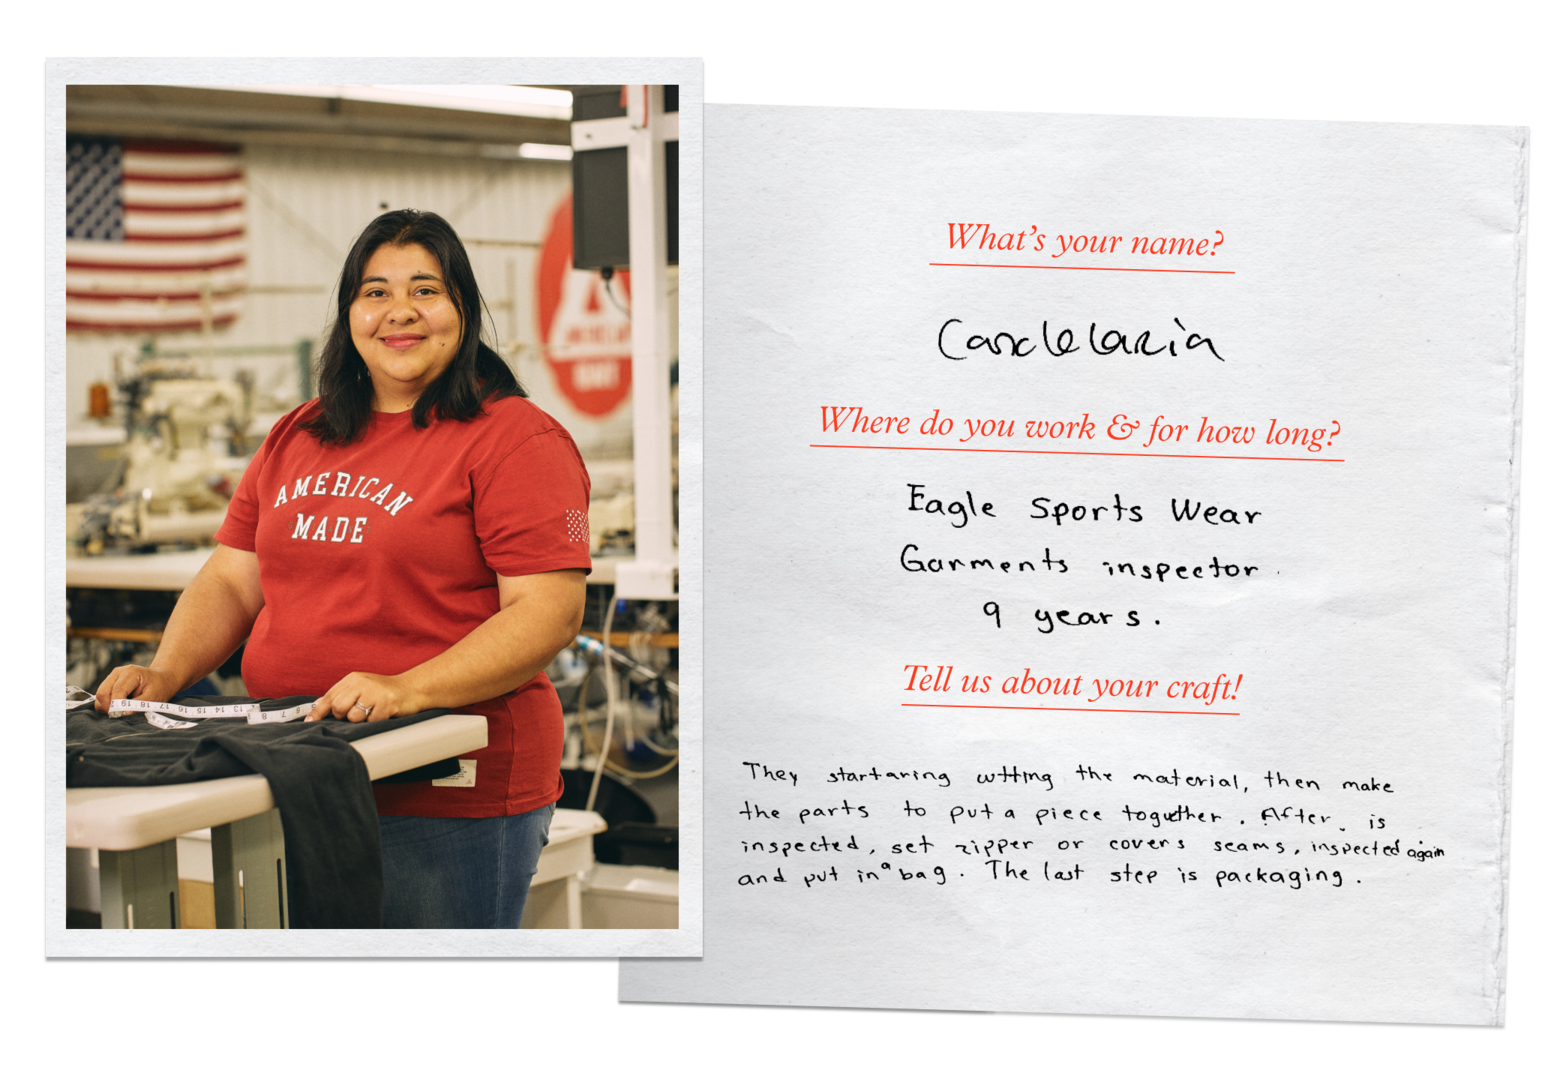 AMERICAN
MADE
What's your name?
Candelaria
Where do you work & for how long?
Eagle Sports Wear
Garments inspector
9 years.
Tell us about your craft!
They startaring cutting the material, then make
the parts to put a piece together. After, is
inspected, set zipper or covers seams, inspected again
and put in a bag. The last step is packaging.